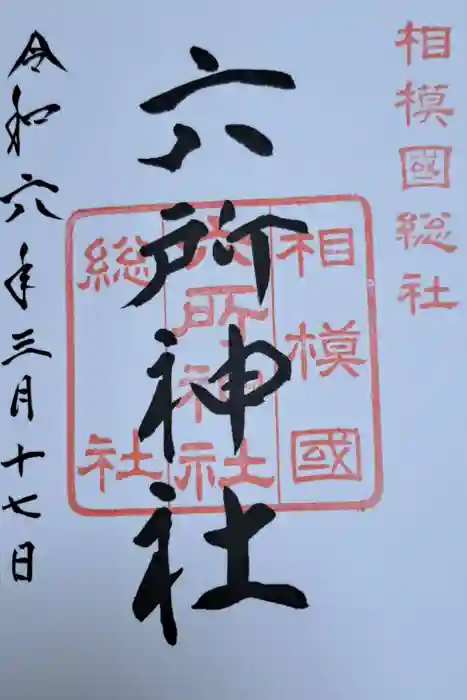 相模國総社
相模國
六所神社
総社
六所神社
令和六年三月十七日